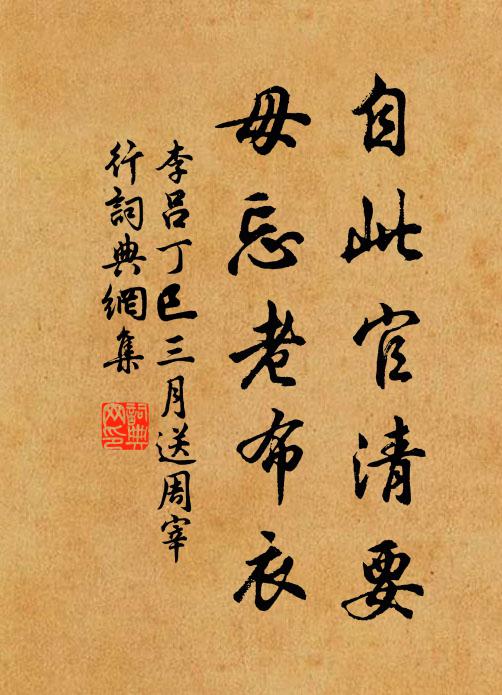 自此官清要
毋忘老布衣
李吕丁巳三月送周宰
行詞典網集
詞典
网印